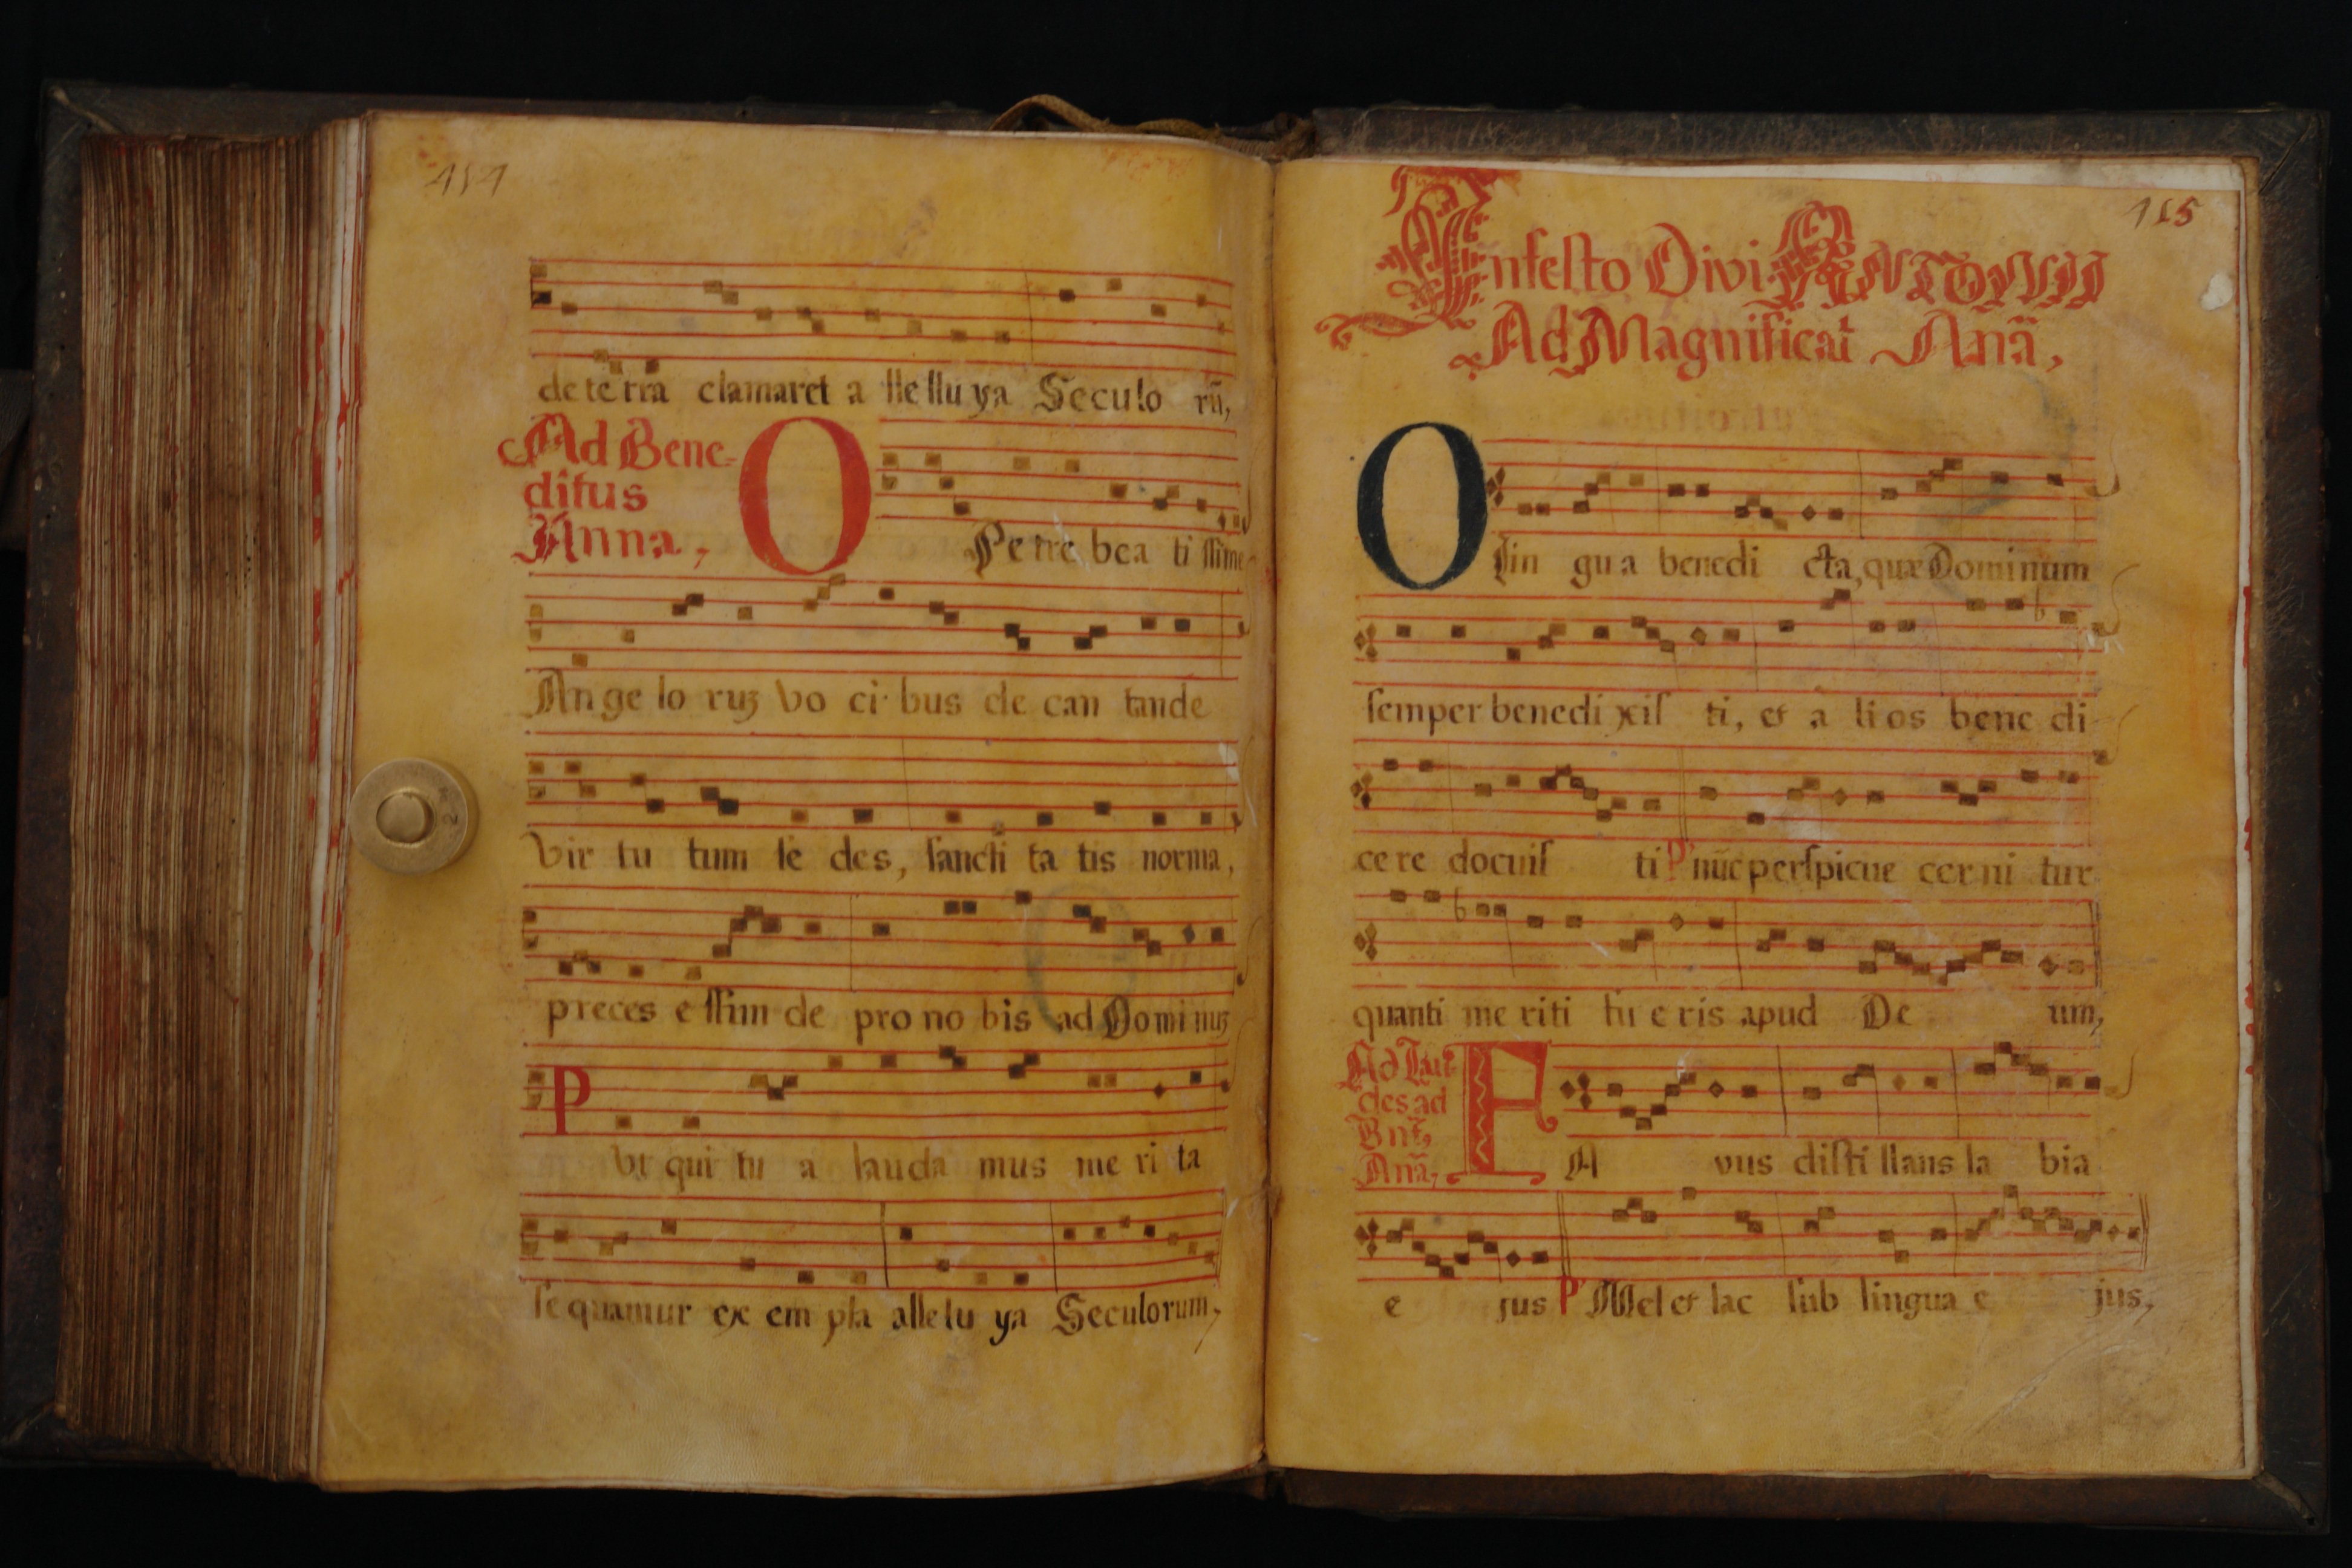 de te rra clamaret a lle llu ya Seculo rũ,
Ad Bene=
ditus
Anna,
O Petre bea ti ſſime
An ge lo ruʒ vo ci bus de can tande
Vir tu tum ſe des, ſancti ta tis norma,
preces e ffun de pro no bis ad Domi nuʒ
P Vt qui tu a lauda mus me ri ta
ſe quamur ex em pla alle lu ya Seculorum,
115
In feſto Divi ANTONII
Ad Magnificat Anã,
O lin gu a benedi cta, quæ Dominum
ſemper benedi xiſ ti, et a li os bene di
ce re docuiſ ti P nũc perſpicue cer ni tur
quanti me riti fu e ris apud De um,
Ad Lau-
des ad
Bnt̃,
Anã,
F A vus diſti llans la bia
e jus P Mel et lac ſub lingua e jus,